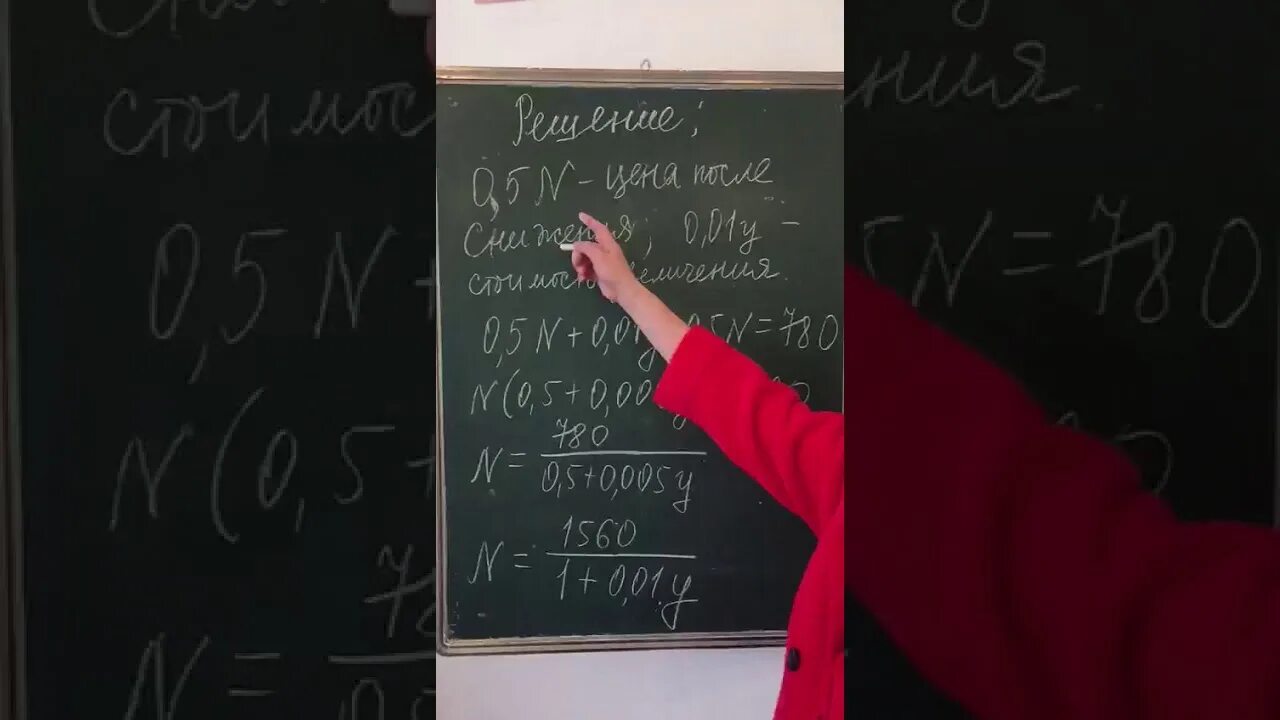 Решение;
0,5 N – цена после
снижения; 0,01 y –
величения.
0,5 N + 0,01 N = 780
N (0,5 + 0,00
N = 780 / 0,5 + 0,005 y
N = 1560 / 1 + 0,01 y